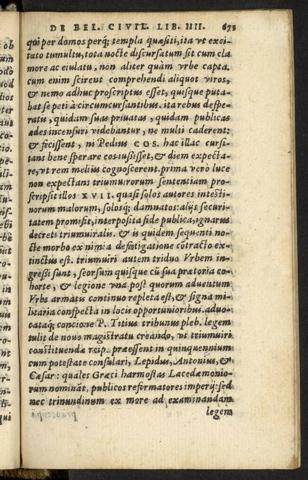 DE BEL. CIVIL. LIB. IIII. 675
qui per domos perq́; templa quæsiti, ita vt exci-
tato tumultu, tota nocte discursatum sit cum cla
more ac eiulatu, non aliter quàm vrbe capta.
cum enim scirent comprehendi aliquot viros,
& nemo adhuc proscriptus esset, quisque puta-
bat se peti à circumcursantibus. ita rebus despe-
ratis, quidam suas priuatas, quidam publicas
ædes incensuri videbantur, ne multi caderent:
& fecissent, ni Pedius COS. hac illac cursi-
tans bene sperare eos iussisset, & diem expecta-
re, vt rem melius cognoscerent. prima verò luce
non expectans triumuirorum sententiam pro-
scripsit illos XVII. quasi solos autores intesti-
norum malorum, solosq́; damnatos: alijs securi-
tatem promisit, interposita fide publica, ignarus
decreti triumuiralis. & is quidem sequenti no-
cte morbo ex nimia defatigatione cōtracto ex-
tinctus est. triumuiri autem triduo Vrbem in-
gressi sunt, seorsum quisque cū sua prætoria co-
horte, & legione vna. post quorum aduentum
Vrbs armatu continuo repleta est, & signa mi-
litaria conspecta in locis opportunioribus. aduo-
cataq́; concione P. Titius tribunus pleb. legem
tulit de nouo magistratu creando, vt triumuiri
constituendæ reip. præessent in quinquennium
cum potestate consulari, Lepidus, Antonius, &
Cæsar: quales Græci harmostas Lacedæmonio-
rum nomināt, publicos reformatores imperij: sed
nec trinundinum ex more ad examinandam
legem